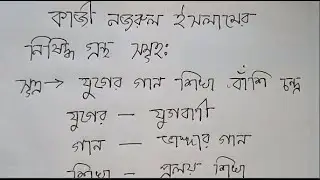 কাজী নজরুল ইসলামের
নিষিদ্ধ গ্রন্থ সমূহঃ
সূত্র → যুগের গান শিখা বাঁশি চন্দ্র
যুগের — যুগবাণী
গান — ভাঙ্গার গান
শিখা - প্রলয় শিখা